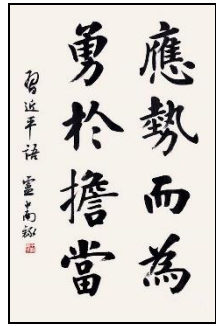 應勢而為
勇於擔當
習近平語 靈南錄